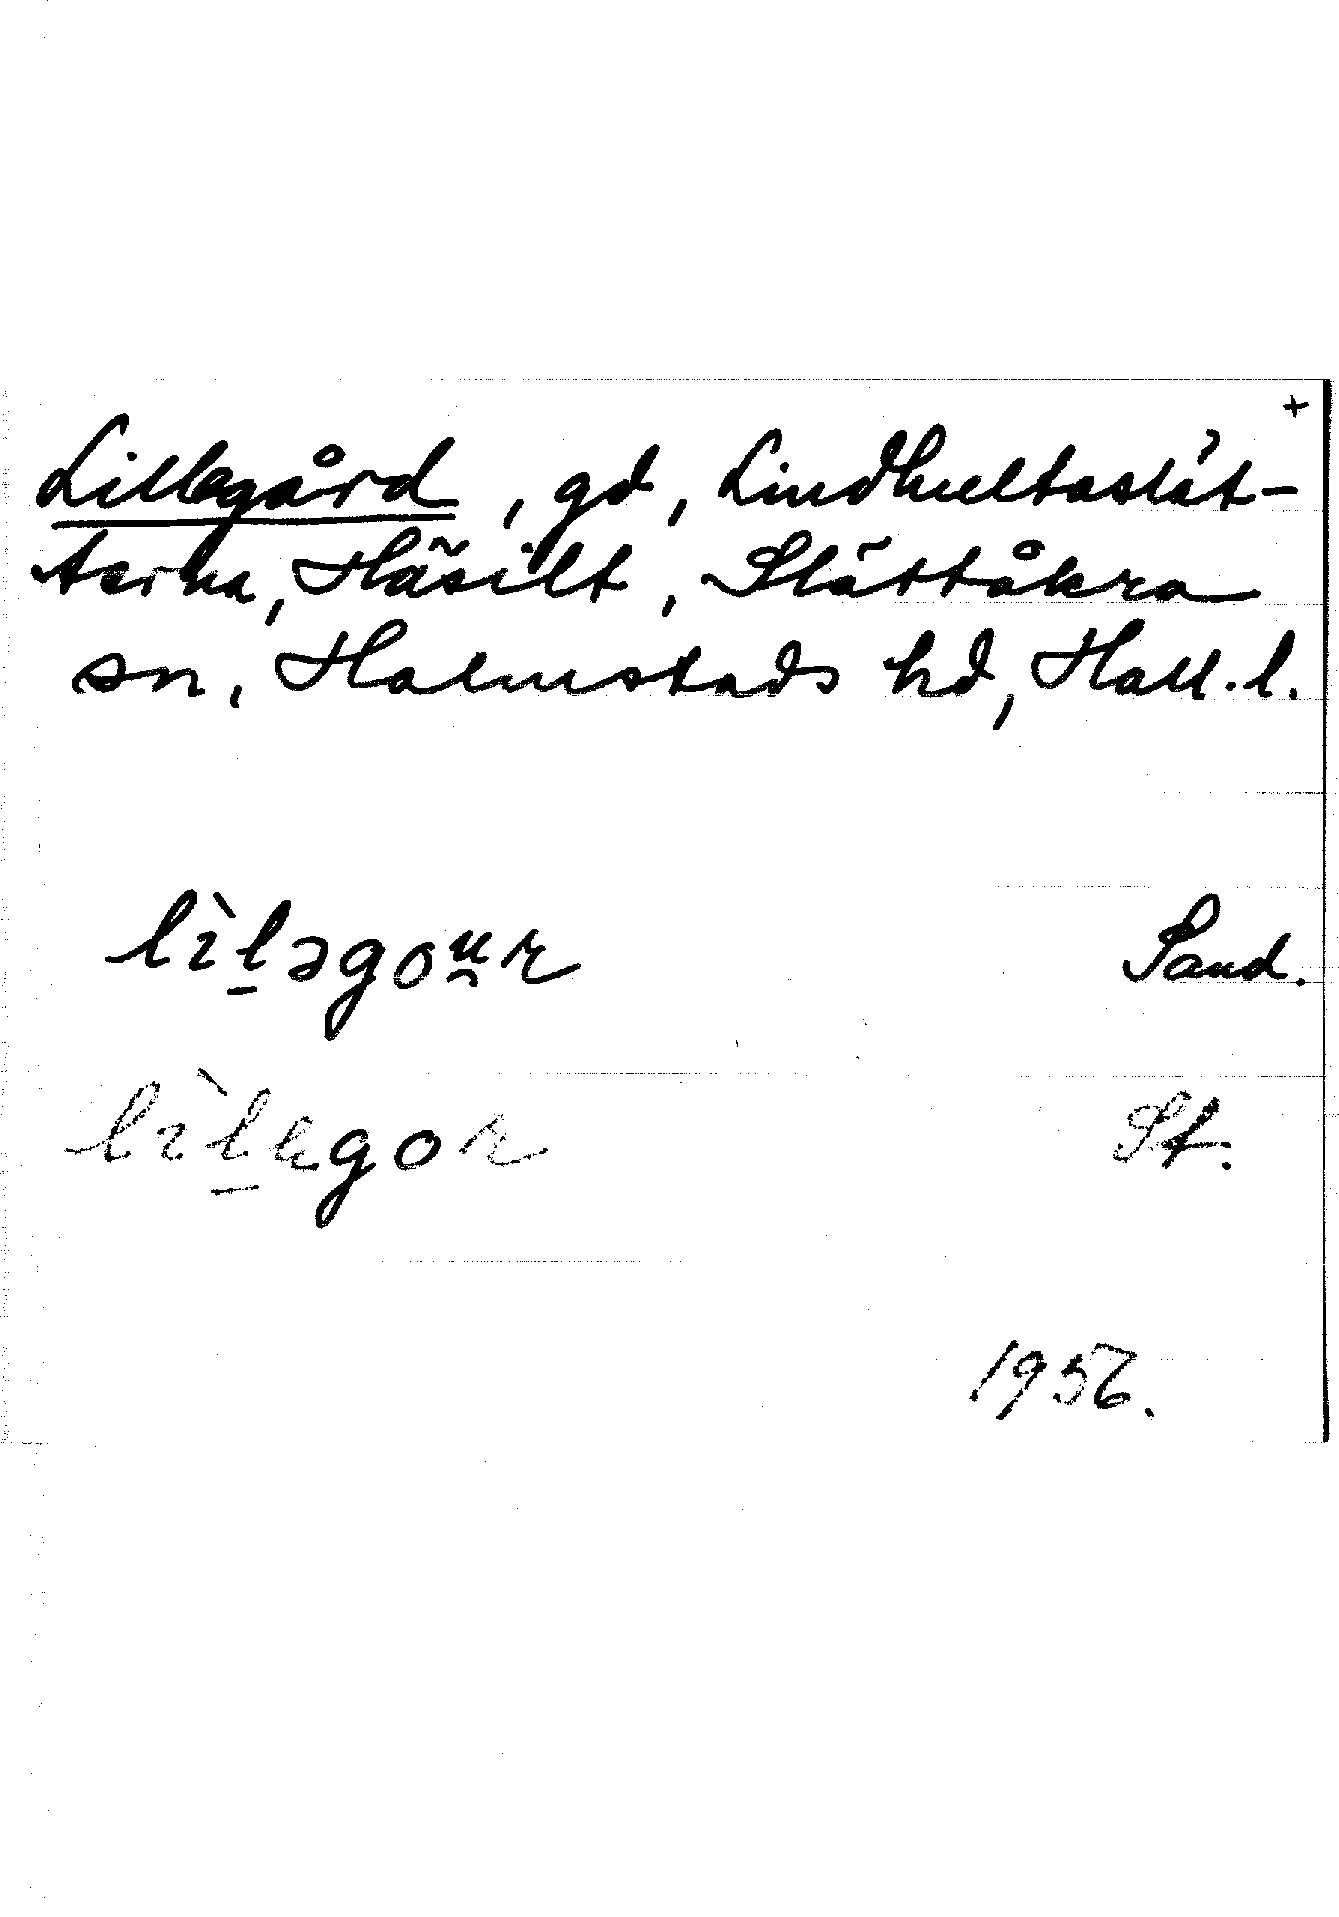 +
Lillegård, gd, Lindhultaslät-
terna, Häsilt, Slättåkra
sn, Halmstads hd, Hall. l.
lìḻəgoṷr Sand.
St.
1956.